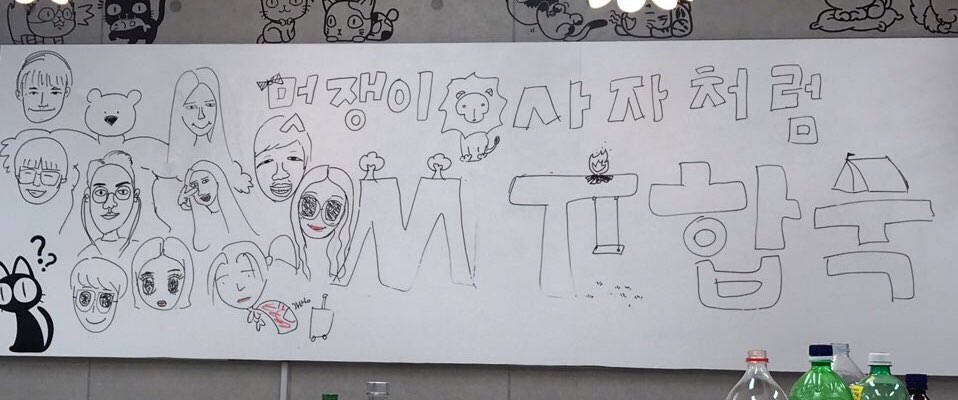 멋쟁이 사자처럼
MT 합숙
??